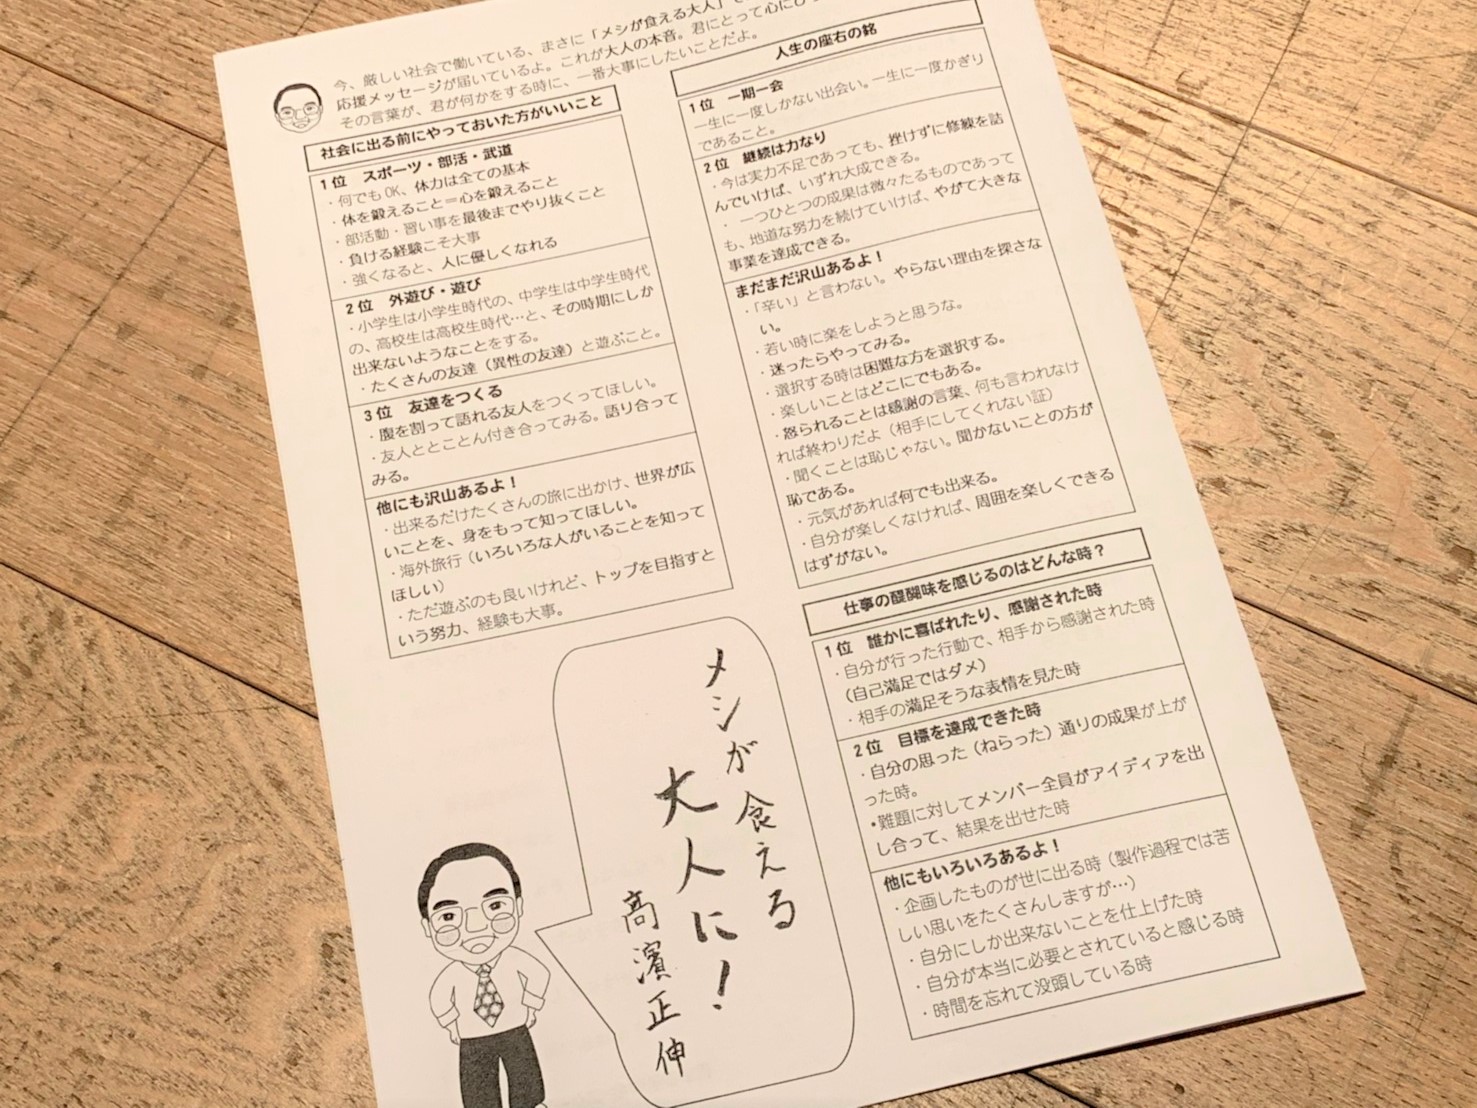 今、厳しい社会で働いている、まさに「メシが食える大人」
応援メッセージが届いているよ。これが大人の本音。君にとって心に
その言葉が、君が何かをする時に、一番大事にしたいことだよ。
社会に出る前にやっておいた方がいいこと
1位 スポーツ・部活・武道
・何でもOK、体力は全ての基本
・体を鍛えること＝心を鍛えること
・部活動・習い事を最後までやり抜くこと
・負ける経験こそ大事
・強くなると、人に優しくなれる
2位 外遊び・遊び
・小学生は小学生時代の、中学生は中学生時代
の、高校生は高校生時代…と、その時期にしか
出来ないようなことをする。
・たくさんの友達（異性の友達）と遊ぶこと。
3位 友達をつくる
・腹を割って語れる友人をつくってほしい。
・友人ととことん付き合ってみる。語り合って
みる。
他にも沢山あるよ！
・出来るだけたくさんの旅に出かけ、世界が広
いことを、身をもって知ってほしい。
・海外旅行（いろいろな人がいることを知って
ほしい）
・ただ遊ぶのも良いけれど、トップを目指すと
いう努力、経験も大事。
人生の座右の銘
1位 一期一会
一生に一度しかない出会い。一生に一度かぎり
であること。
2位 継続は力なり
・今は実力不足であっても、挫けずに修練を詰
んでいけば、いずれ大成できる。
・一つひとつの成果は微々たるものであって
も、地道な努力を続けていけば、やがて大きな
事業を達成できる。
まだまだ沢山あるよ！
・「辛い」と言わない。やらない理由を探さな
い。
・若い時に楽をしようと思うな。
・迷ったらやってみる。
・選択する時は困難な方を選択する。
・楽しいことはどこにでもある。
・怒られることは感謝の言葉、何も言われなけ
れば終わりだよ（相手にしてくれない証）
・聞くことは恥じゃない。聞かないことの方が
恥である。
・元気があれば何でも出来る。
・自分が楽しくなければ、周囲を楽しくできる
はずがない。
仕事の醍醐味を感じるのはどんな時？
1位 誰かに喜ばれたり、感謝された時
・自分が行った行動で、相手から感謝された時
（自己満足ではダメ）
・相手の満足そうな表情を見た時
2位 目標を達成できた時
・自分の思った（ねらった）通りの成果が上が
った時。
・難題に対してメンバー全員がアイディアを出
し合って、結果を出せた時
他にもいろいろあるよ！
・企画したものが世に出る時（製作過程では苦
しい思いをたくさんしますが…）
・自分にしか出来ないことを仕上げた時
・自分が本当に必要とされていると感じる時
・時間を忘れて没頭している時
メシが食える
大人に！
高濱正伸